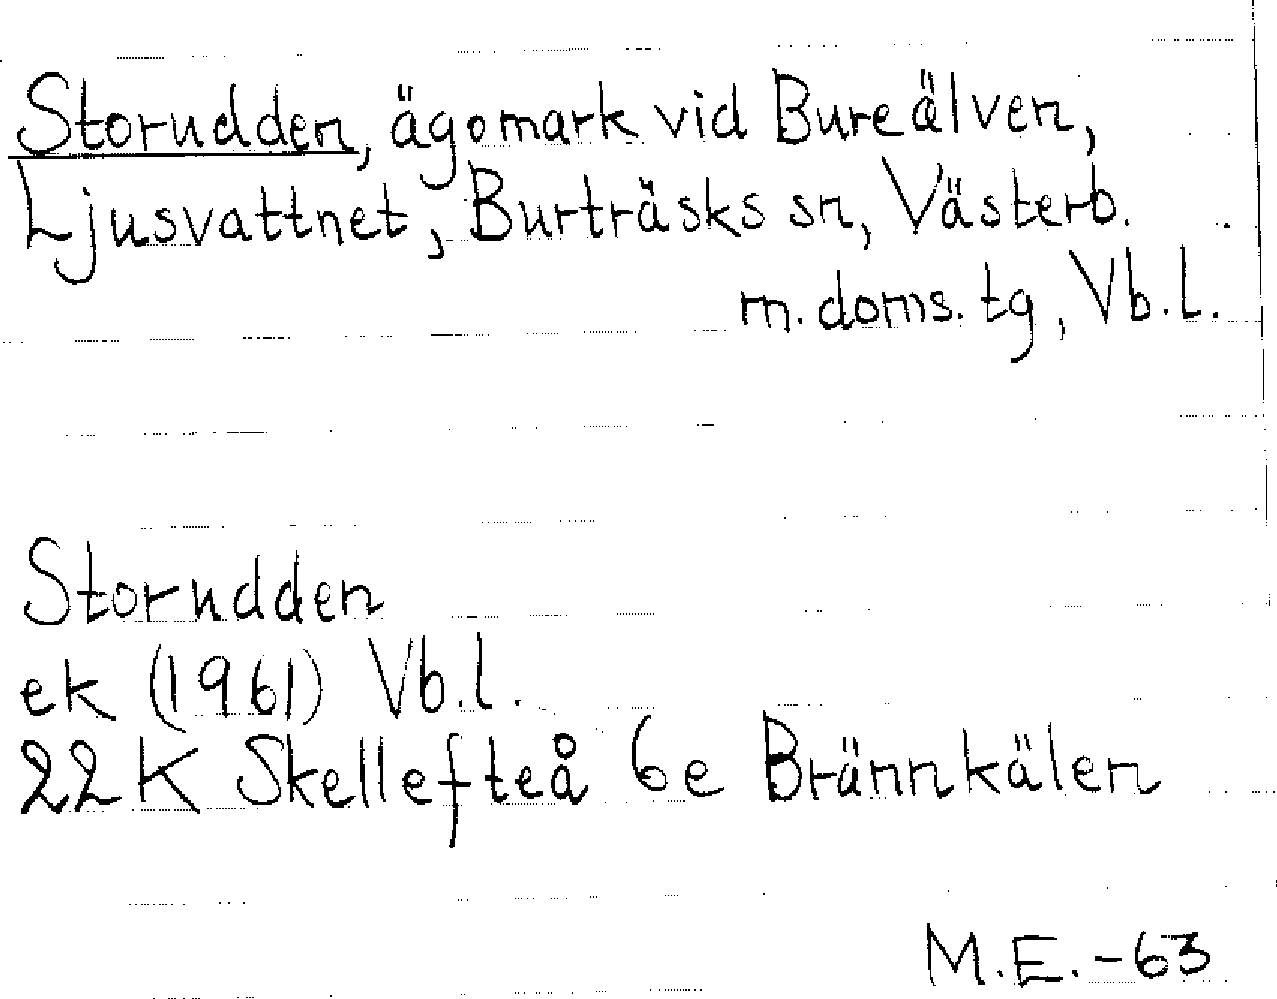 Storudden, ägomark vid Bureälven,
Ljusvattnet, Burträsks sn, Västerb.
m. doms. tg, Vb. l.
Storudden
ek (1961) Vb. l.
22 K Skellefteå 6e Brännkälen
M.E. -63